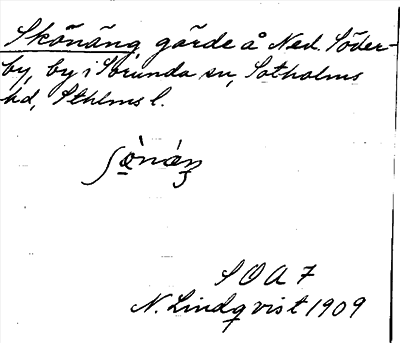 Skönäng gärde å Ned. Söder-
by, by i Sorunda sn, Sotholms
hd, Sthlms l.
SOA 7
N. Lindqvist 1909